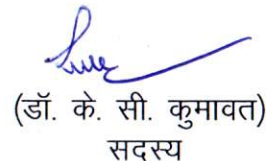 (डॉ. के. सी. कुमावत)
सदस्य